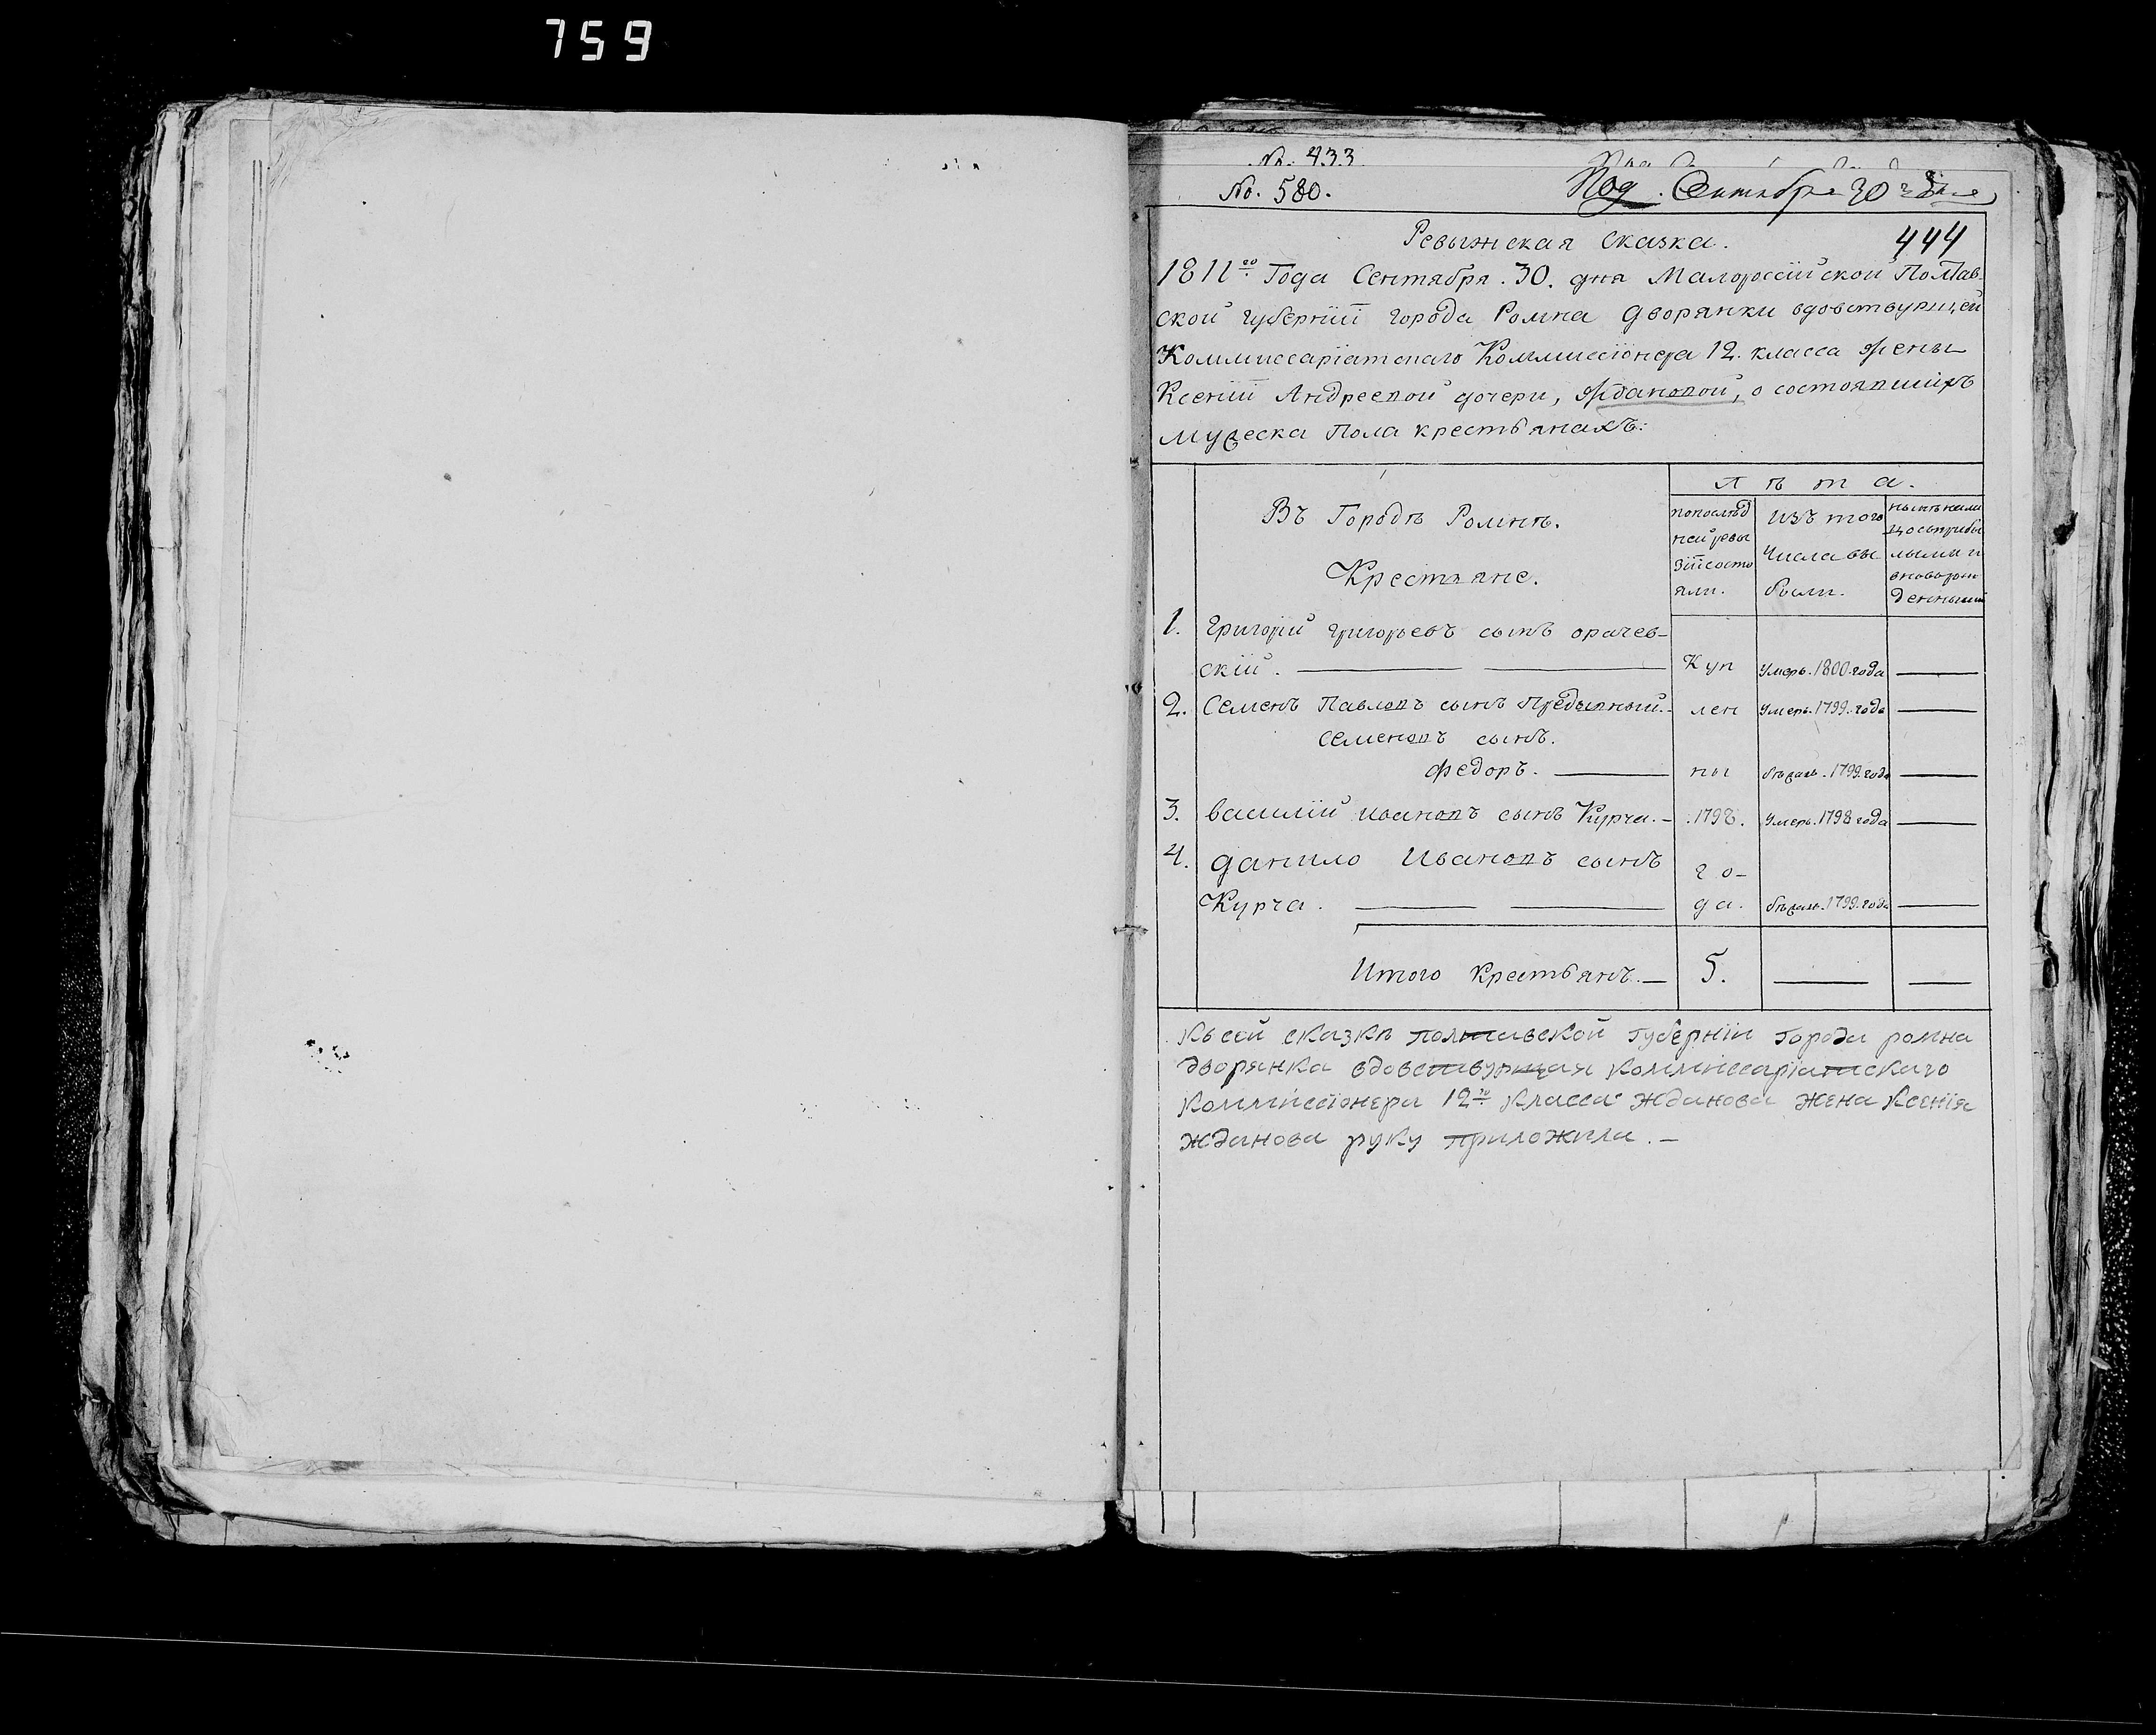 759
№. 433
№. 580.
Под. Сентября 30 го дня
Ревыжская сказка.
444
1811го Года Сентября. 30. дня Малороссійской Полтав-
ской губерніи города Ромна дворянки вдовствующей
Коммиссаріатскаго Коммиссіонера 12. класса жены
Ксеніи Андреевой дочери, Ждановой, о состоявшихъ
мужеска Пола крестьянахъ:
Въ Городѣ Ромнѣ.
Крестьяне.
Лѣта.
попослѣд
ней ревы
зіи состо
яли.
Изъ того
Числа вы
были.
1. Григорій григорьевъ сынъ орачев-
скій. Куп Умеръ. 1800. года
2. Семенъ Павловъ сынъ Предывный. лен Умеръ. 1799. года
Семеновъ сынъ.
Федоръ. ны бѣжалъ. 1799. года
3. василій ивановъ сынъ Курча. – .1798. Умеръ. 1798 года
4. данило Ивановъ сынъ го-
Курча. да. бѣжалъ. 1799. года
Итого крестьянъ. – 5.
Къ сей сказкѣ полтавской губерніи города ромна
дворянка вдовствующая коммиссаріатскаго
коммиссіонера 12го класса жданова жена Ксенія
жданова руку приложила. –